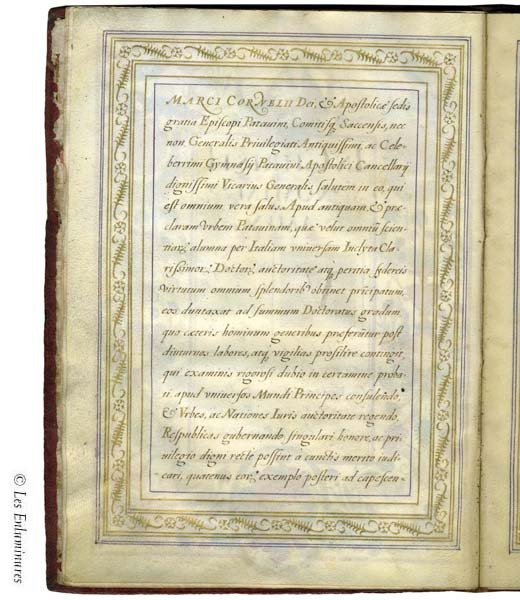 MARCI CORNELII Dei, & Apostolicæ sedis
gratia Episcopi Patavini, Comitisq; Saccensis, nec
non Generalis Privilegiati Antiquissimi, ac Cele-
berrimi Gymnasij Patavini Apostolici Cancellarij
dignissimi Vicarius Generalis salutem in eo, qui
est omnium vera salus. Apud antiquam & præ-
claram Vrbem Patavinam, quæ velut omniũ scien-
tiarꝝ alumna per Italiam vniversam Inclyta Cla-
rissimorꝝ Doctorꝝ auctoritate atq; peritia
virtutum omnium splendoribꝰ obtinet prĩcipatum,
eos duntaxat ad summum Doctoratus gradum,
quo cæteris hominum generibus præferũtur post
diuturnos labores, atq; vigilias prosilire contingit,
qui examinis rigorosi dubio in certamine proba-
ti apud vniversos Mundi Principes consulẽdo,
& Vrbes, ac Nationes Iuris auctoritate regendo,
Respublicas gubernando, singulari honore, ac pri-
uilegio digni recte possint à cunctis merito iudi-
cari, quatenus eorꝝ exemplo posteri ad capescen-
© Les Enluminures